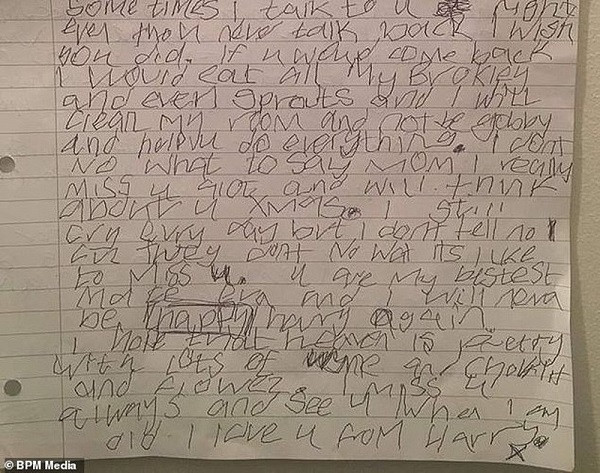 Some times I talk to u at night
even thou never talk back I wish
you did. if u weud come back
I would eat all my Brokley
and even sprouts and I will
clean my room and not be gobby
and helpu do everything. I dont
no what to say mom I really
miss u alot and will think
about u xmas. I still
cry evry day but i dont tell no 1
cuz they dont no wat its like
to miss u. u are my bestest
mate eva and I will neva
be happy harry again
i hope that heaven is pretty
with lots of wine an choklit
and flowers. I miss u
always and see u when I am
old I love u from Harry x
BPM Media